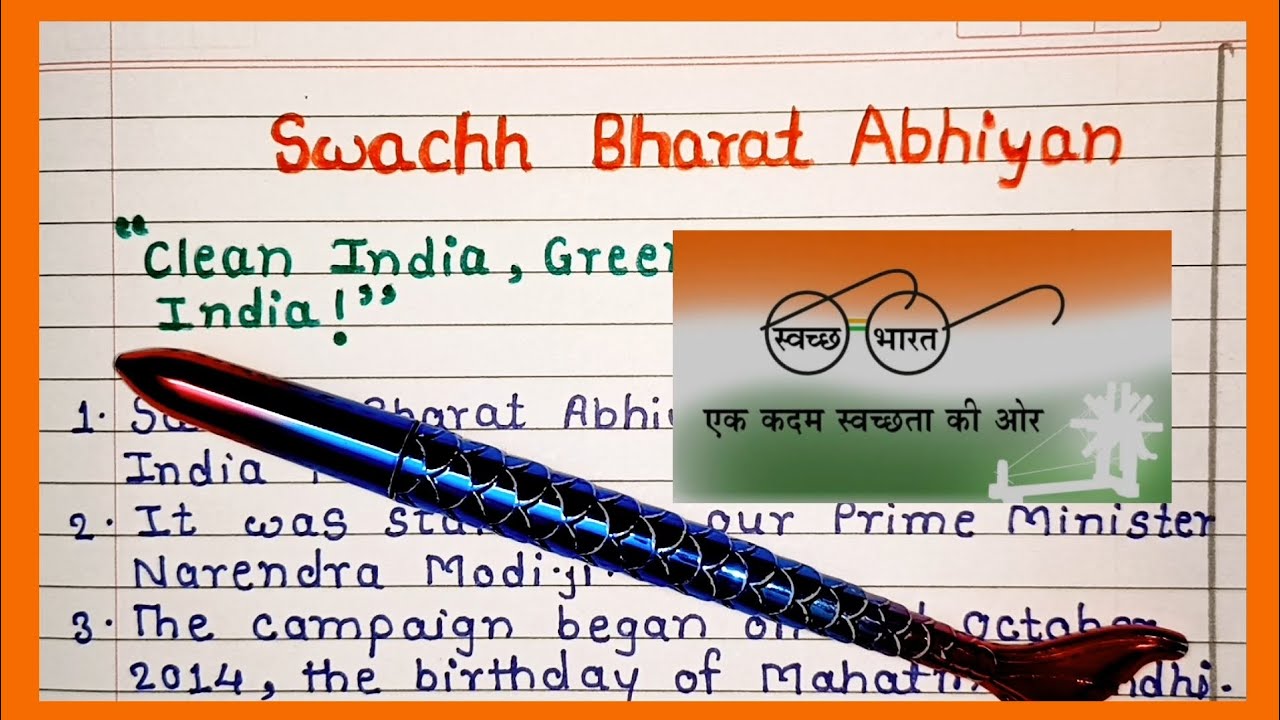 Swachh Bharat Abhiyan
"Clean India, Green
India!"
स्वच्छ भारत
एक कदम स्वच्छता की ओर
1. Bharat
India
2. It was our Prime Minister
Narendra Modi.ji.
3. The campaign began October
2014, the birthday of